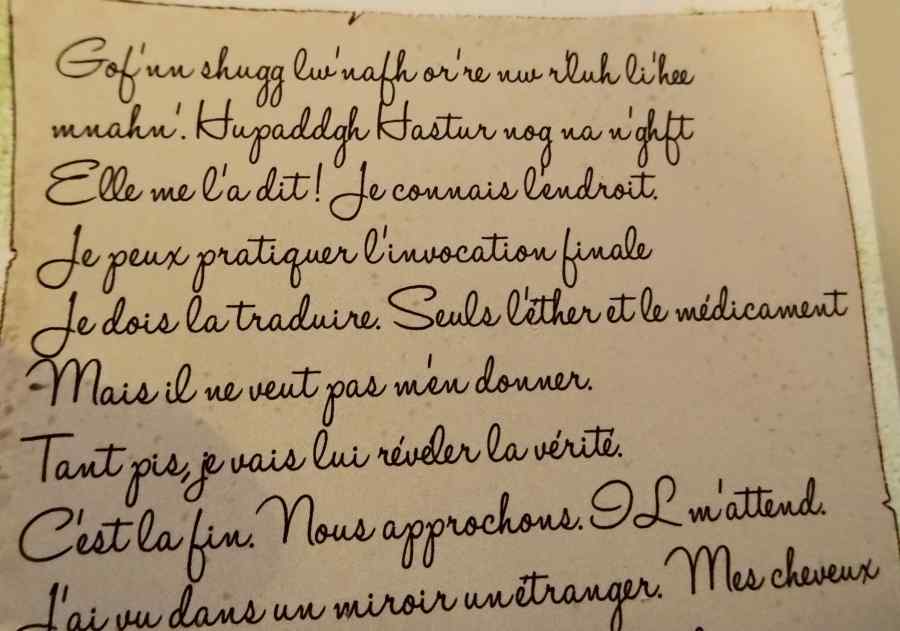 Gof'nn shugg lw'nafh or're nw r'luh li'hee
mnahn'. Hupaddgh Hastur nog na n'ghft
Elle me l'a dit! Je connais l'endroit.
Je peux pratiquer l'invocation finale
Je dois la traduire. Seuls l'éther et le médicament
Mais il ne veut pas m'en donner.
Tant pis, je vais lui révéler la vérité.
C'est la fin. Nous approchons. IL m'attend.
J'ai vu dans un miroir un étranger. Mes cheveux